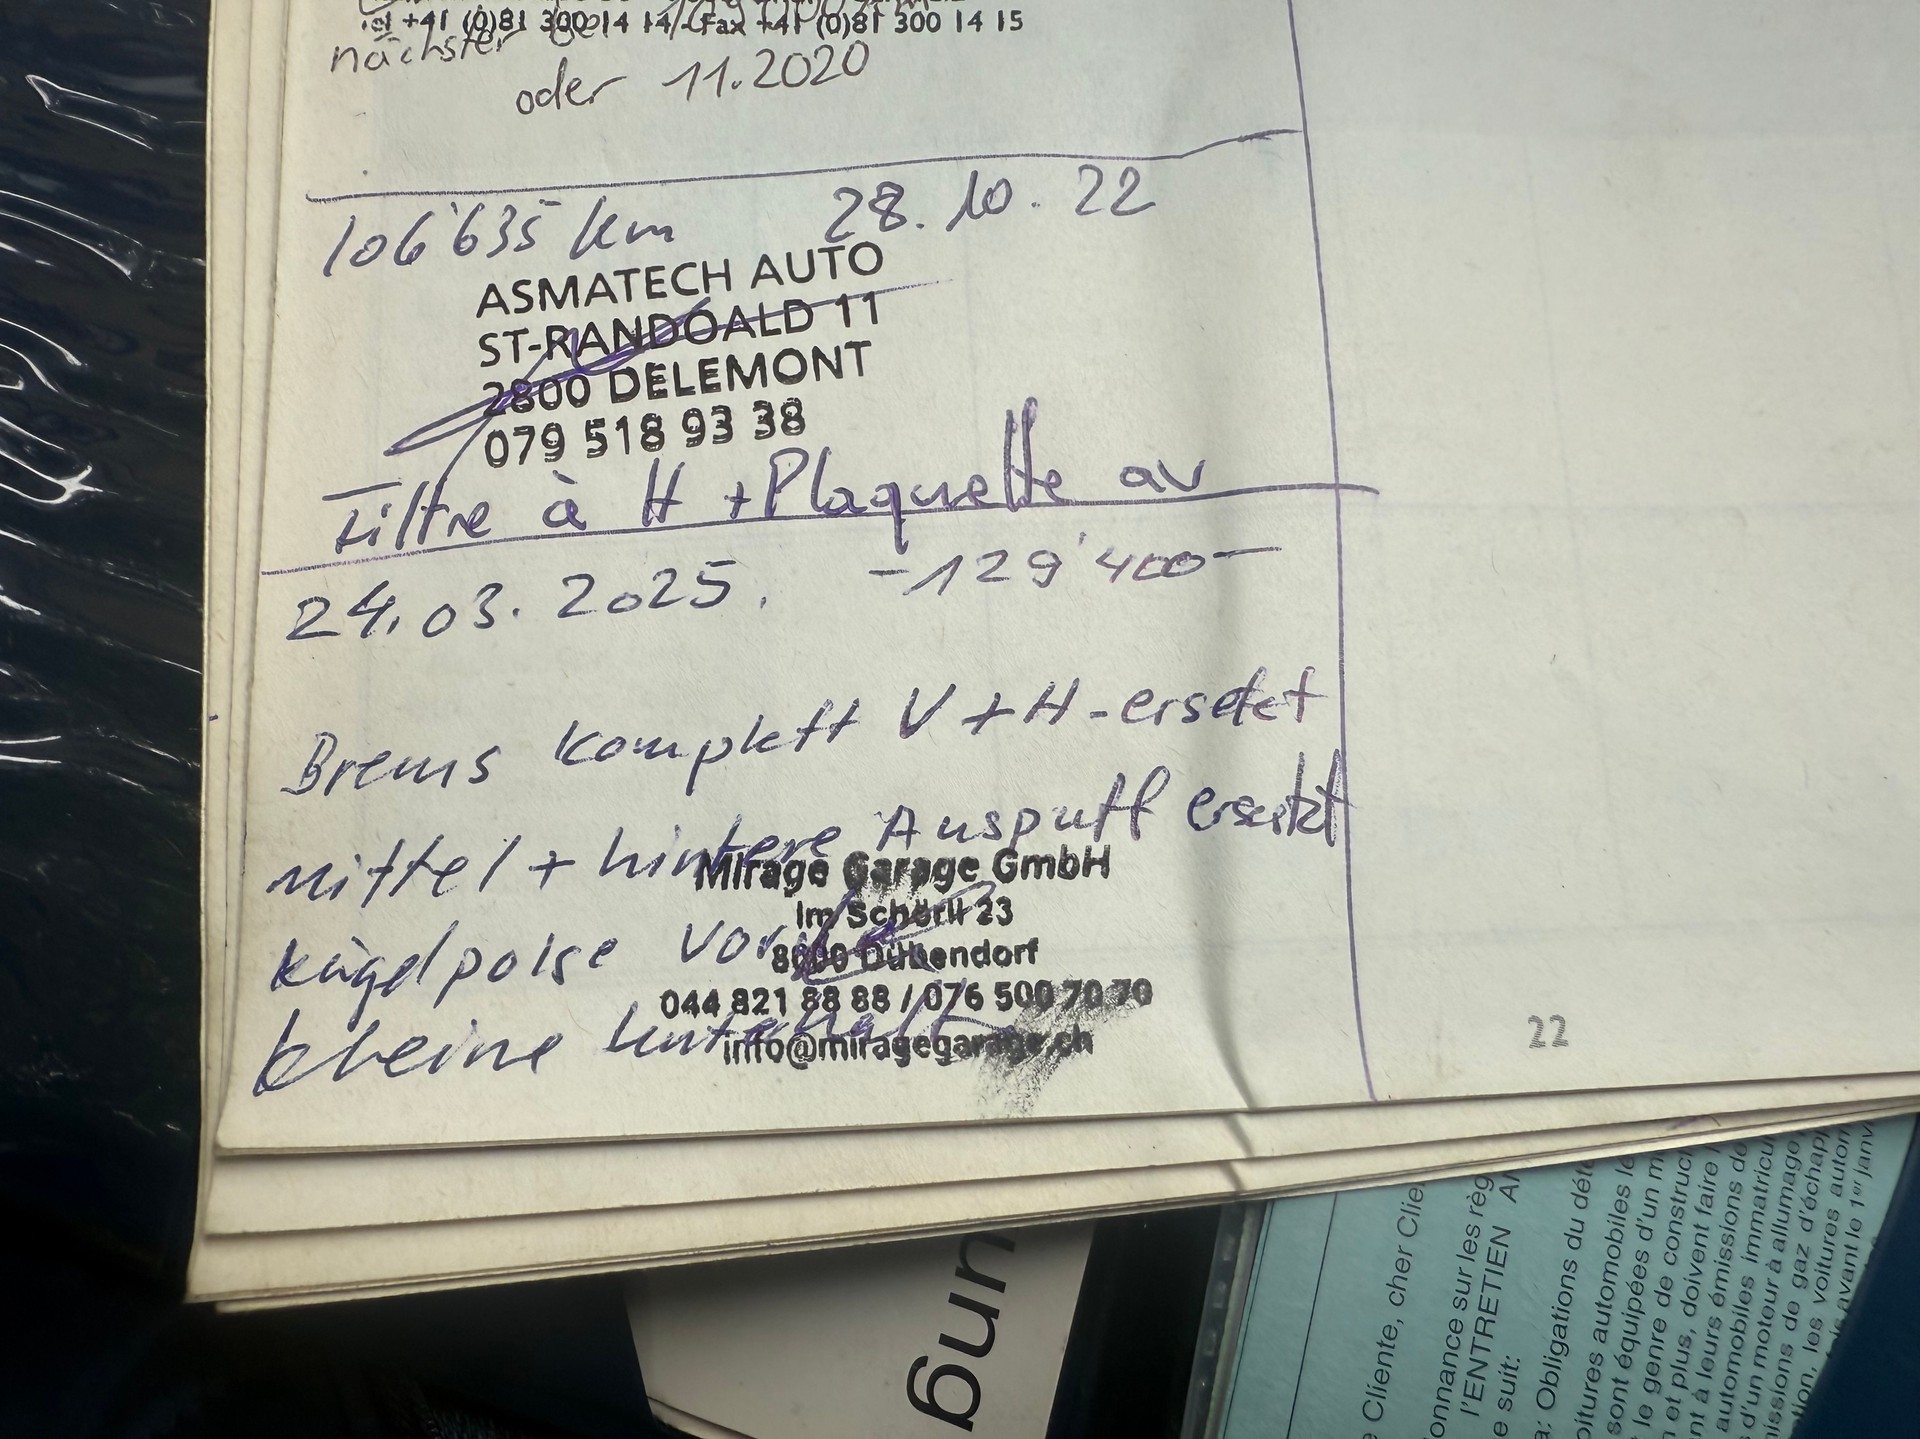 Tel +41 (0)81 300 14 14 / Fax +41 (0)81 300 14 15
nächster bei
oder 11.2020
106'635 km 28.10.22
ASMATECH AUTO
ST-RANDOALD 11
2800 DELEMONT
079 518 93 38
Filtre à H + Plaquette av
24.03.2025. -129'400-
Brems komplett V + H - ersetzt
mittel + hintere Auspuff ersetzt
Mirage Garage GmbH
Im Schörli 23
kügelpolse
8600 Dübendorf
044 821 88 88 / 076 500 70 70
kleine Unterhalt
info@miragegarage.ch
22
ung
e Cliente, cher Clie
onnance sur les règ
l'ENTRETIEN
e suit:
a: Obligations du dét
oitures automobiles l
sont équipées d'un m
le genre de construc
n et plus, doivent faire
nt à leurs émissions d
automobiles immatricu
d'un moteur à allumage
missions de gaz d'échap
tion, les voitures autom
is avant le 1er janv